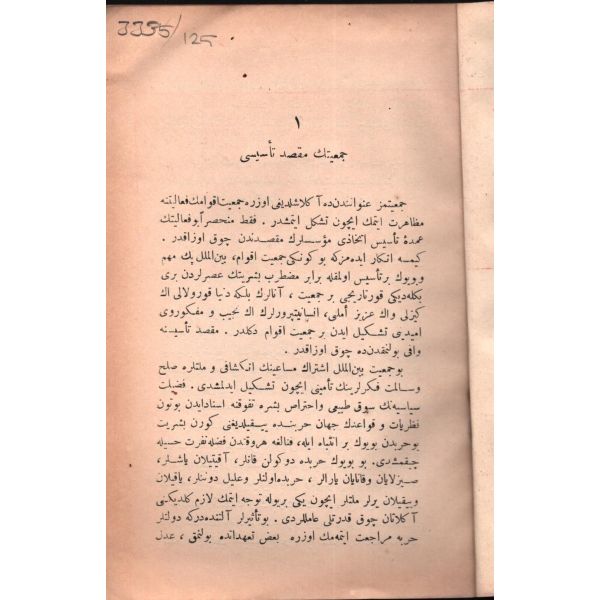 3335/125
١
جمعيتك مقصد تأسيسى
جمعيتمز عنوانندن ده آ كلاشلديغى اوزره جمعيت اقوامك فعاليتنه
مظاهرت ايتمك ايچون تشكل ايتمشدر . فقط منحصراً بو فعاليتك
عمدۀ تأسيس اتخاذى مؤسسلرك مقصدندن چوق اوزاقدر .
كيمسه انكار ايده مز كه بو كونكى جمعيت اقوام ، بين الملل پك مهم
وبويوك بر تأسيس اولمقله برابر مضطرب بشريتك عصرلردن برى
بكله ديكى قورتاريجى بر جمعيت ، آنالرك بلكه دنيا قورولالى اك
كيزلى واك عزيز أملى ، انسانيتپرورلرك اك نجيب و مفكوروى
اميديى تشكيل ايدن بر جمعيت اقوام دكلدر . مقصد تأسيسنه
وافى بولنمقدن ده چوق اوزاقدر .
بو جمعيت بين الملل اشتراك مساعينك انكشافى و ملتلره صلح
وسالمت فكرلرينك تأمينى ايچون تشكيل ايدلمشدى . فضيلت
سياسيه نك سوق طبيعى واحتراص بشره تفوقنه اسناد ايدن بوتون
نظريات و قواعدك جهان حربنده ييقيلديغنى كورن بشريت
بو حربدن بويوك بر انتباه ايله ، فنالغه هر وقتدن فضله نفرت حسيله
چيقمشدى . بو بويوك حربده دوكولن قانلر ، آقيتيلان ياشلر ،
صيزلايان وقانايان يارالر ، حربده اولنلر وعليل دوننلر ، ياقيلان
وييقيلان يرلر ملتلر ايچون يكى بر يوله توجه ايتمك لازم كلديكنى
آ كلاتان چوق قدرتلى عامللردى . بو تأثيرلر آلتنده در كه دولتلر
حربه مراجعت ايتمه مك اوزره بعض تعهداتده بولنمق ، عدل